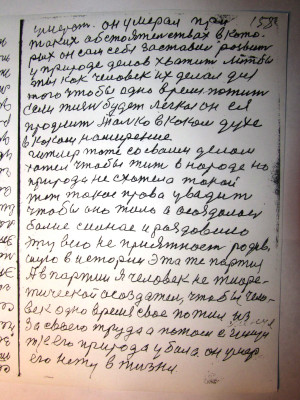 умерет. он умерал при 158
таких обстоятельствах в кото
рых он сам себя заставил
у природе делов хватит
ты как человек их делал для
того чтобы одно время пожит
если жизн будет легка он ея
продлит только в каком духе
в каком намирение
гитлер тоже со своим делом
хотел чтобы жит в народе но
природа не схотела такой
жет такое права увидит
чтобы оно жило а
более сильное и раздовило
эту всю не приятност родив
шую в истори эта же партия
А в партии я человек не
тической чтобы чело
век одно время свое пожил из
За своего труда а потом с
т его природа убрала он умер
его нету в жизни